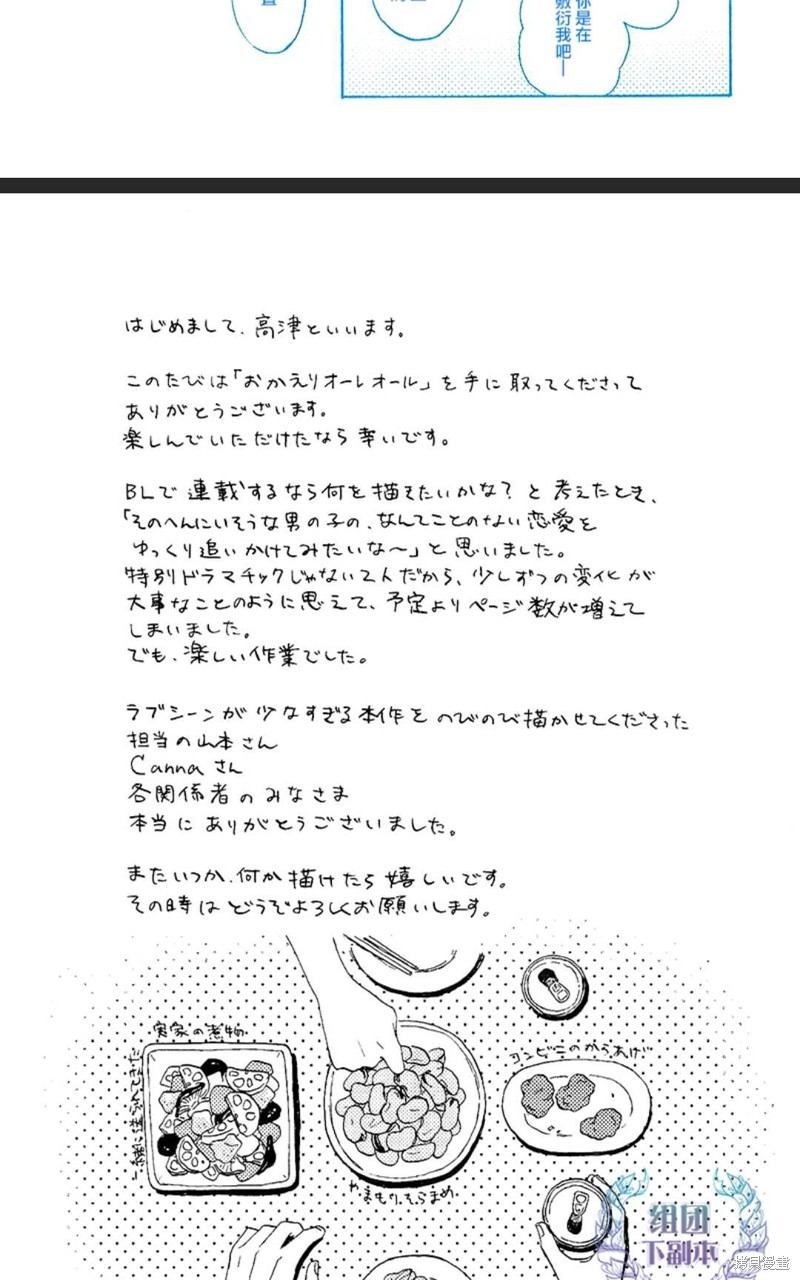 你是在
敷衍我吧─
はじめまして、高津といいます。
このたびは「おかえりオーレオール」を手に取ってくださって
ありがとうございます。
楽しんでいただけたなら幸いです。
BLで連載するなら何を描きたいかな？と考えたとき、
「そのへんにいそうな男の子の、なんてことのない恋愛を
ゆっくり追いかけてみたいな〜」と思いました。
特別ドラマチックじゃない2人だから、少しずつの変化が
大事なことのように思えて、予定よりページ数が増えて
しまいました。
でも、楽しい作業でした。
ラブシーンが少なすぎる本作をのびのび描かせてくださった
担当の山本さん
Cannaさん
各関係者のみなさま
本当にありがとうございました。
またいつか、何か描けたら嬉しいです。
その時はどうぞよろしくお願いします。
実家の煮物
コンビニのからあげ
やまもりそらまめ
组团
下副本
拷貝漫畫